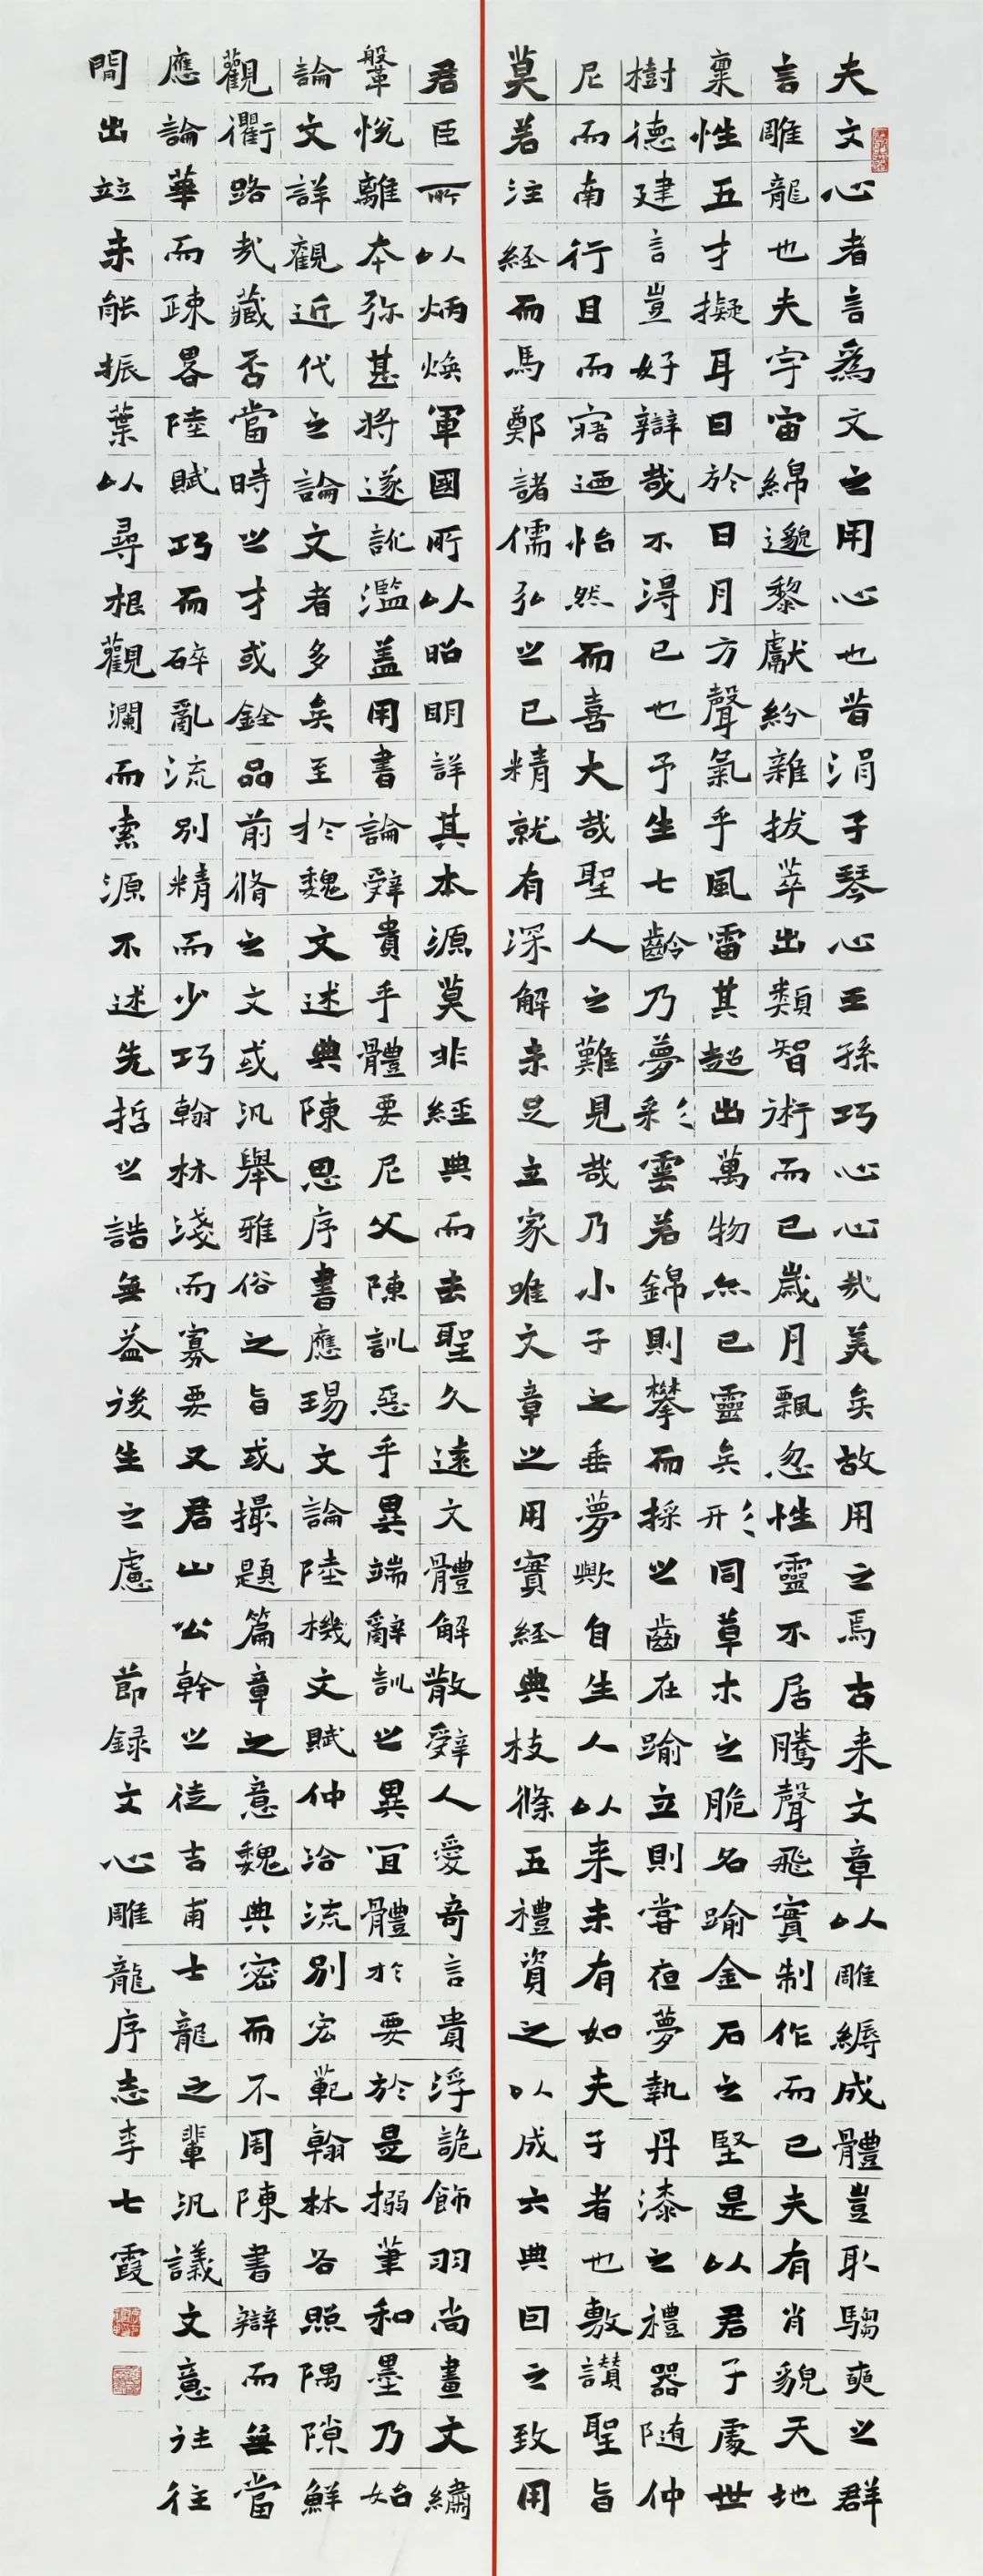 夫文心者言爲文之用心也昔涓子琴心王孫巧心心哉美矣故用之焉古来文章以雕縟成體豈取騶奭之群
言雕龍也夫宇宙綿邈黎獻紛雜拔萃出類智術而已歲月飄忽性靈不居騰聲飛實制作而已夫有肖貌天地
稟性五才擬耳目於日月方聲氣乎風雷其超出萬物亦已靈矣形同草木之脆名踰金石之堅是以君子處世
樹德建言豈好辯哉不得已也予生七齡乃夢彩雲若錦則攀而採之齒在踰立則嘗夜夢執丹漆之禮器随仲
尼而南行旦而寤迺怡然而喜大哉聖人之難見哉乃小子之垂夢歟自生人以来未有如夫子者也敷讚聖旨
莫若注經而馬鄭諸儒弘之已精就有深解未足立家唯文章之用實經典枝條五禮資之以成六典因之致用
君臣所以炳煥軍國所以昭明詳其本源莫非經典而去聖久遠文體解散辭人愛奇言貴浮詭飾羽尚畫文繡
鞶帨離本弥甚將遂訛濫蓋周書論辭貴乎體要尼父陳訓惡乎異端辭訓之異宜體於要於是搦筆和墨乃始
論文詳觀近代之論文者多矣至於魏文述典陳思序書應瑒文論陸機文賦仲洽流別宏範翰林各照隅隙鮮
觀衢路哉藏否當時之才或銓品前脩之文或汎舉雅俗之旨或撮題篇章之意魏典密而不周陳書辯而無當
應論華而疎畧陸賦巧而碎亂流別精而少巧翰林淺而寡要又君山公幹之徒吉甫士龍之輩汎議文意往往
間出竝未能振葉以尋根觀瀾而索源不述先哲之誥無益後生之慮 節録文心雕龍序志李七霞